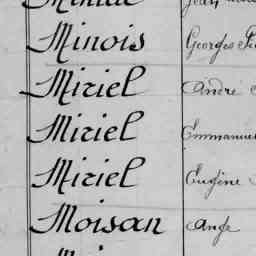 Minois Georges
Miriel André
Miriel Emmanuel
Miriel Eugène
Moisan Ange